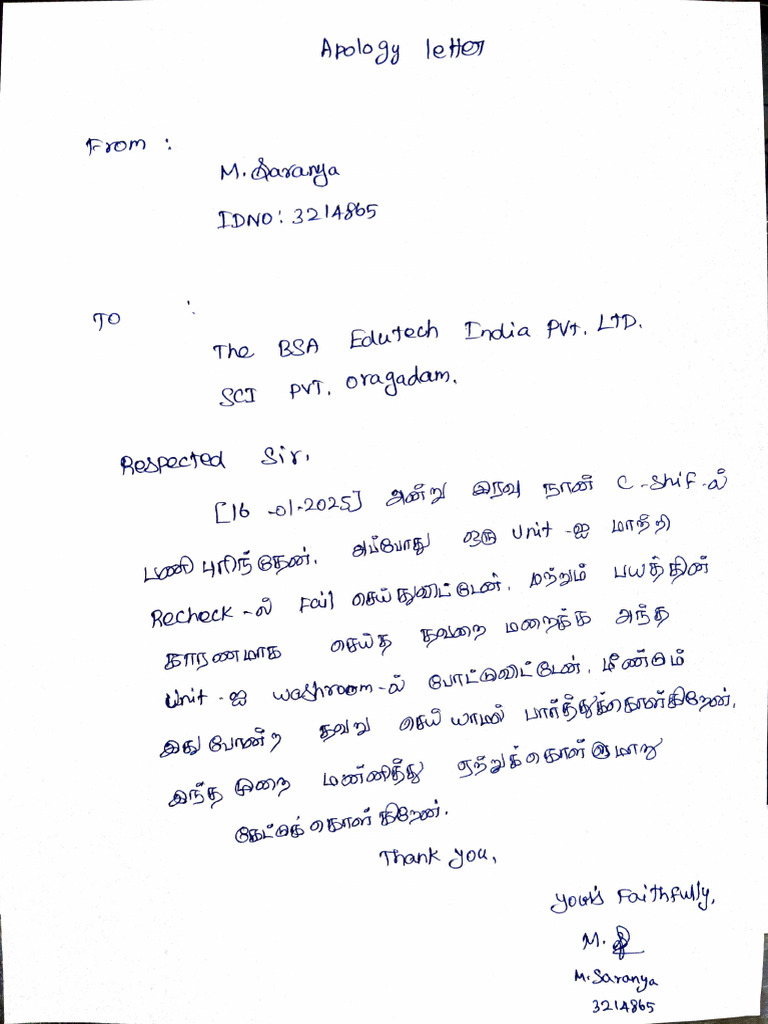 Apology letter
From :
M. Saranya
IDNO: 3214865
TO :
The BSA Edutech India PVT. LTD.
SCI PVT. Oragadam.
Respected Sir,
[16-01-2025] அன்று இரவு நான் C-Shif-ல்
பணி புரிந்தேன். அப்போது ஒரு Unit-ஐ மாற்றி
Recheck-ல் Fail செய்துவிட்டேன். மற்றும் பயத்தின்
காரணமாக செய்த தவறை மறைக்க அந்த
Unit-ஐ washroom-ல் போட்டுவிட்டேன். மீண்டும்
இது போன்ற தவறு செய்யாமல் பார்த்துக்கொள்கிறேன்.
இந்த முறை மன்னித்து ஏற்றுக்கொள்ளுமாறு
கேட்டுக்கொள்கிறேன்.
Thank you,
Yours Faithfully,
M.
M. Saranya
3214865